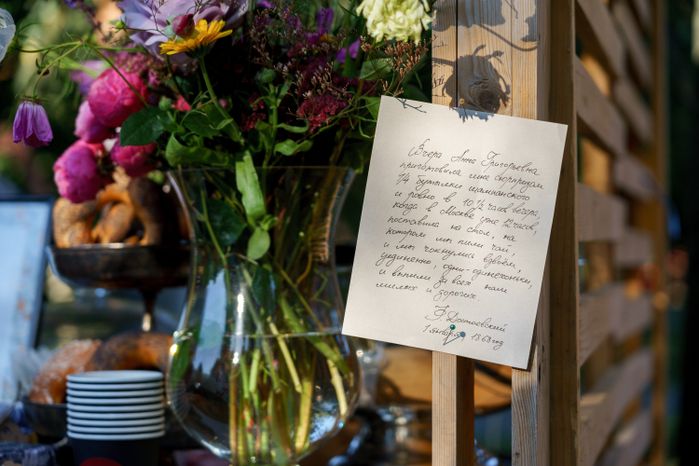 Вчера Анна Григорьевна
приготовила мне сюрпризом
1/4 бутылки шампанского
и ровно в 10 1/2 часов вечера,
когда в Москве уже 12 часов,
поставила на стол, на
котором мы пили чай,
и мы чокнулись вдвоём,
уединенно, одни-одинешеньки,
и выпили за всех нам
милых и дорогих.
Ф. Достоевский
1 января 1868 год